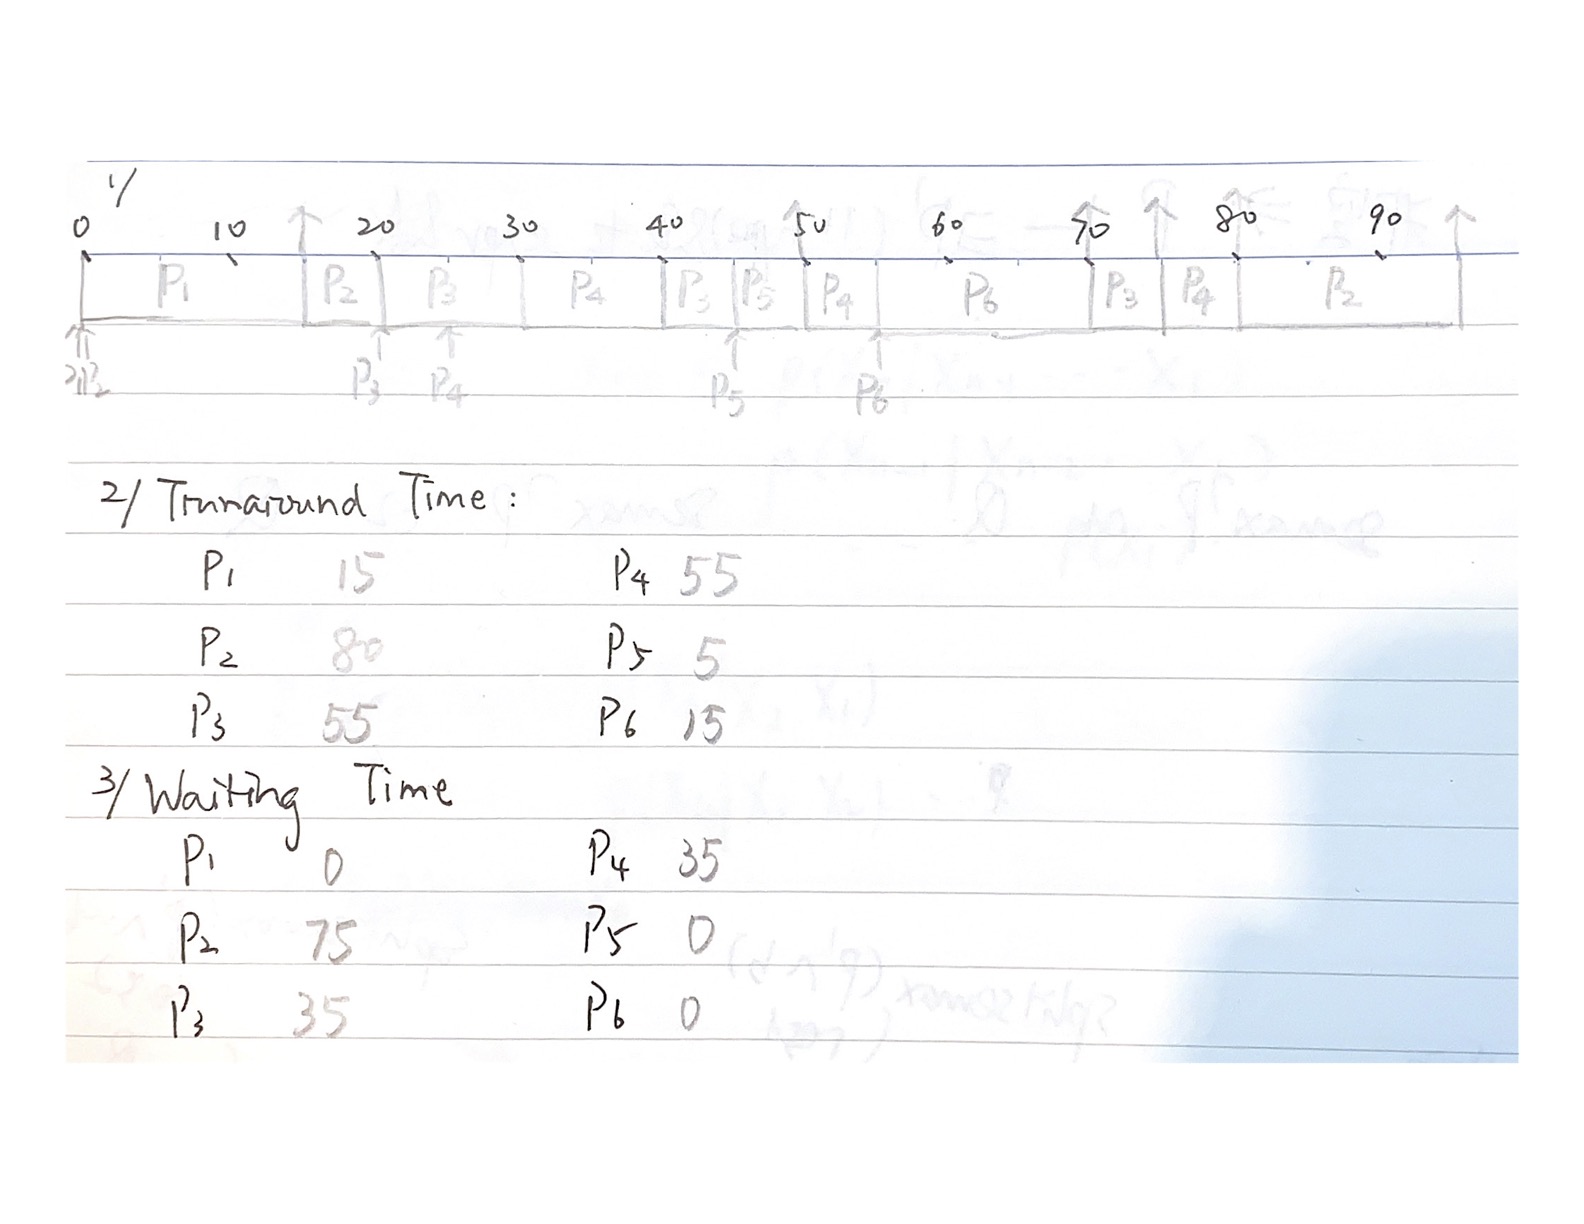 1/
0 10 20 30 40 50 60 70 80 90
P1 P2 P3 P4 P3 P5 P4 P6 P3 P4 P2
P1 P2 P3 P4 P5 P6
2/ Trunaround Time :
P1 15 P4 55
P2 80 P5 5
P3 55 P6 15
3/ Waiting Time
P1 0 P4 35
P2 75 P5 0
P3 35 P6 0